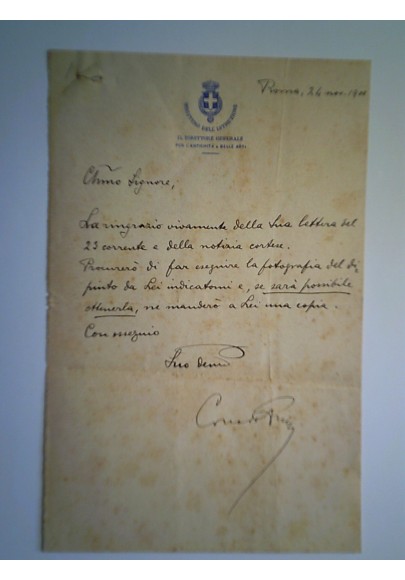 Roma, 24 nov. 19
MINISTERO DELL'ISTRUZIONE
IL DIRETTORE GENERALE
PER L'ANTICHITÀ E BELLE ARTI
Chmo Signore,
La ringrazio vivamente della Sua lettera del
23 corrente e della notizia cortese.
Procurerò di far eseguire la fotografia del di
pinto da Lei indicatomi e, se sarà possibile
ottenerla, ne manderò a Lei una copia.
Con ossequio
Suo devmo
Corrado Ricci